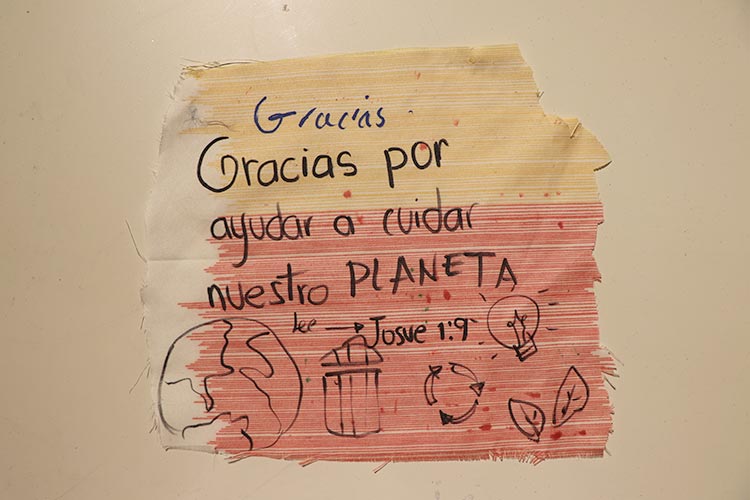 Gracias
Gracias por
ayudar a cuidar
nuestro PLANETA
lee → Josue 1:9